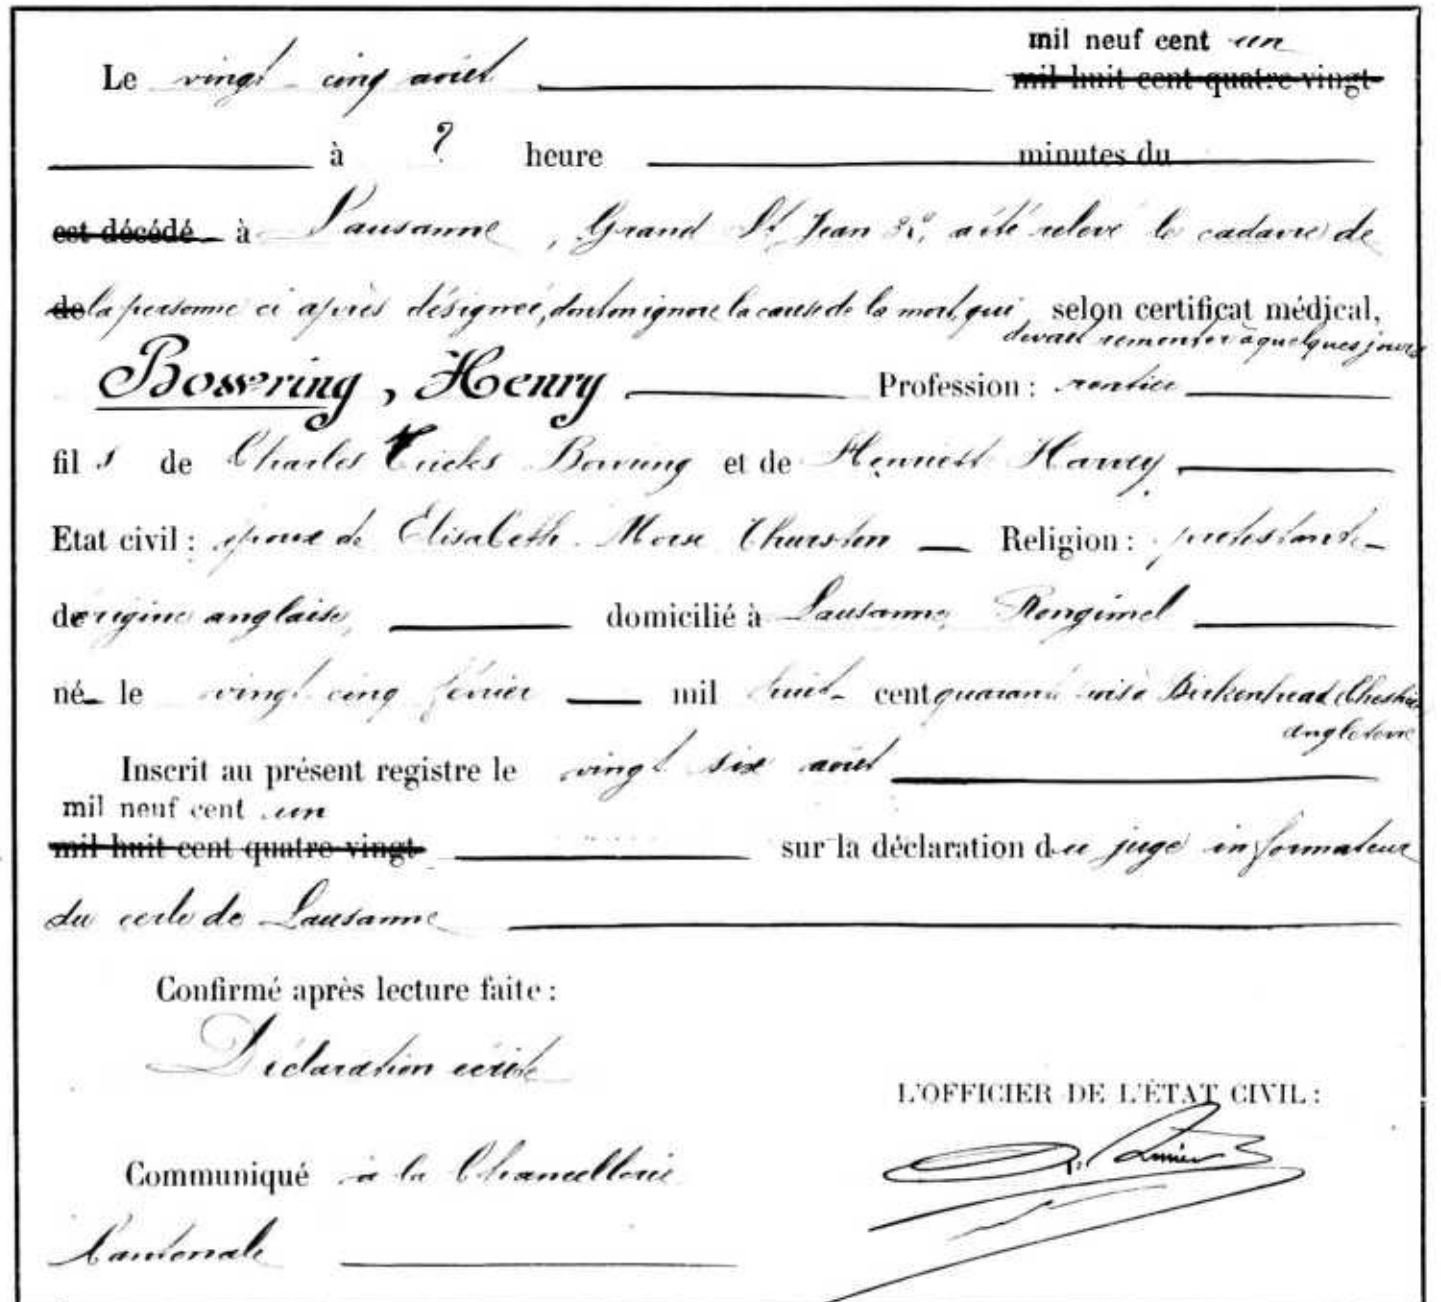 mil neuf cent un
Le vingt-cinq août mil huit cent quatre-vingt
à ? heure minutes du
est décédé à Lausanne, Grand St Jean 32, a été relevé le cadavre de
de la personne ci après désignée, dont on ignore la cause de la mort, qui, selon certificat médical,
devait remonter à quelques jours
Bowring, Henry Profession : rentier
fils de Charles Tricks Bowring et de Henriett Harvey
Etat civil : époux de Elisabeth Morse Thurston Religion : protestante
d'origine anglaise, domicilié à Lausanne, Rongimel
né le vingt cinq février mil huit cent quarante à Birkenhead Cheshire
angleterre
Inscrit au présent registre le vingt six août
mil neuf cent un
mil huit cent quatre-vingt sur la déclaration du juge informateur
du cercle de Lausanne
Confirmé après lecture faite :
Déclaration écrite
L'OFFICIER DE L'ÉTAT CIVIL :
Communiqué à la Chancellerie
Cantonale